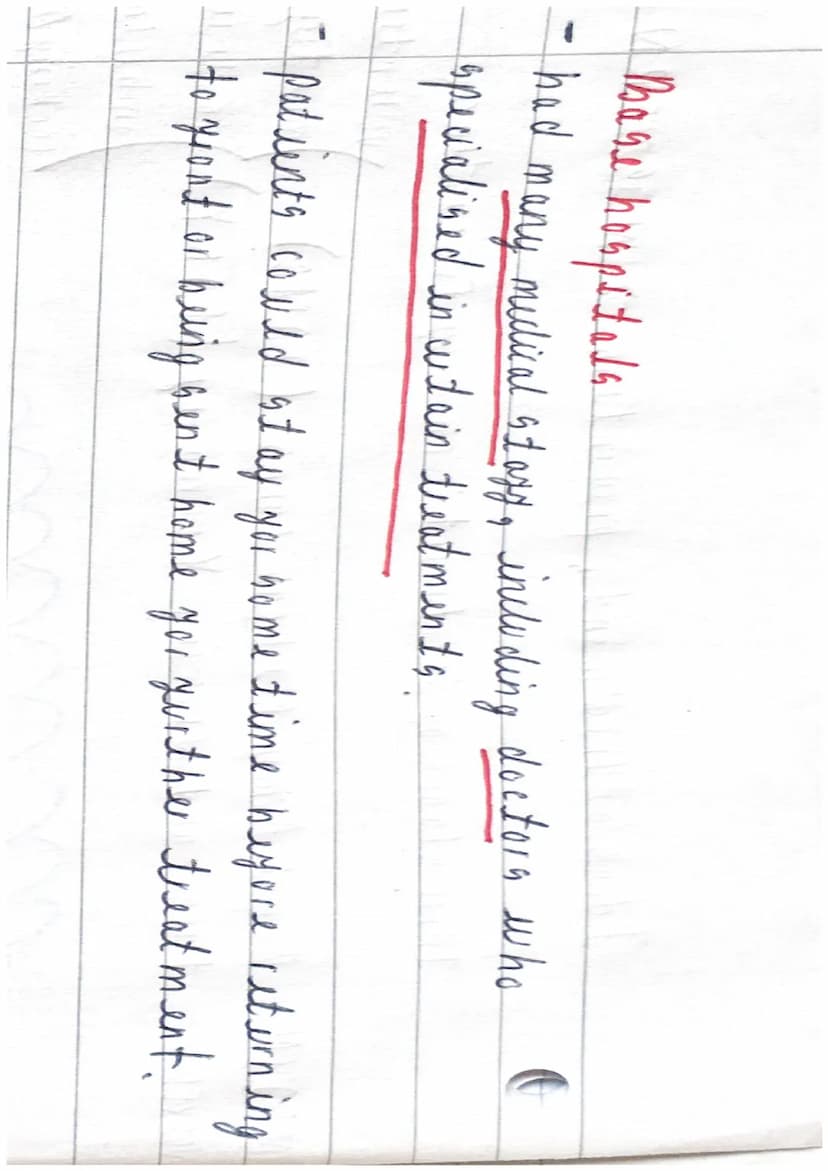 Base hospitals
- had many medical staff, including doctors who
specialised in certain treatments.
- patients could stay for some time before returning
to front or being sent home for further treatment.